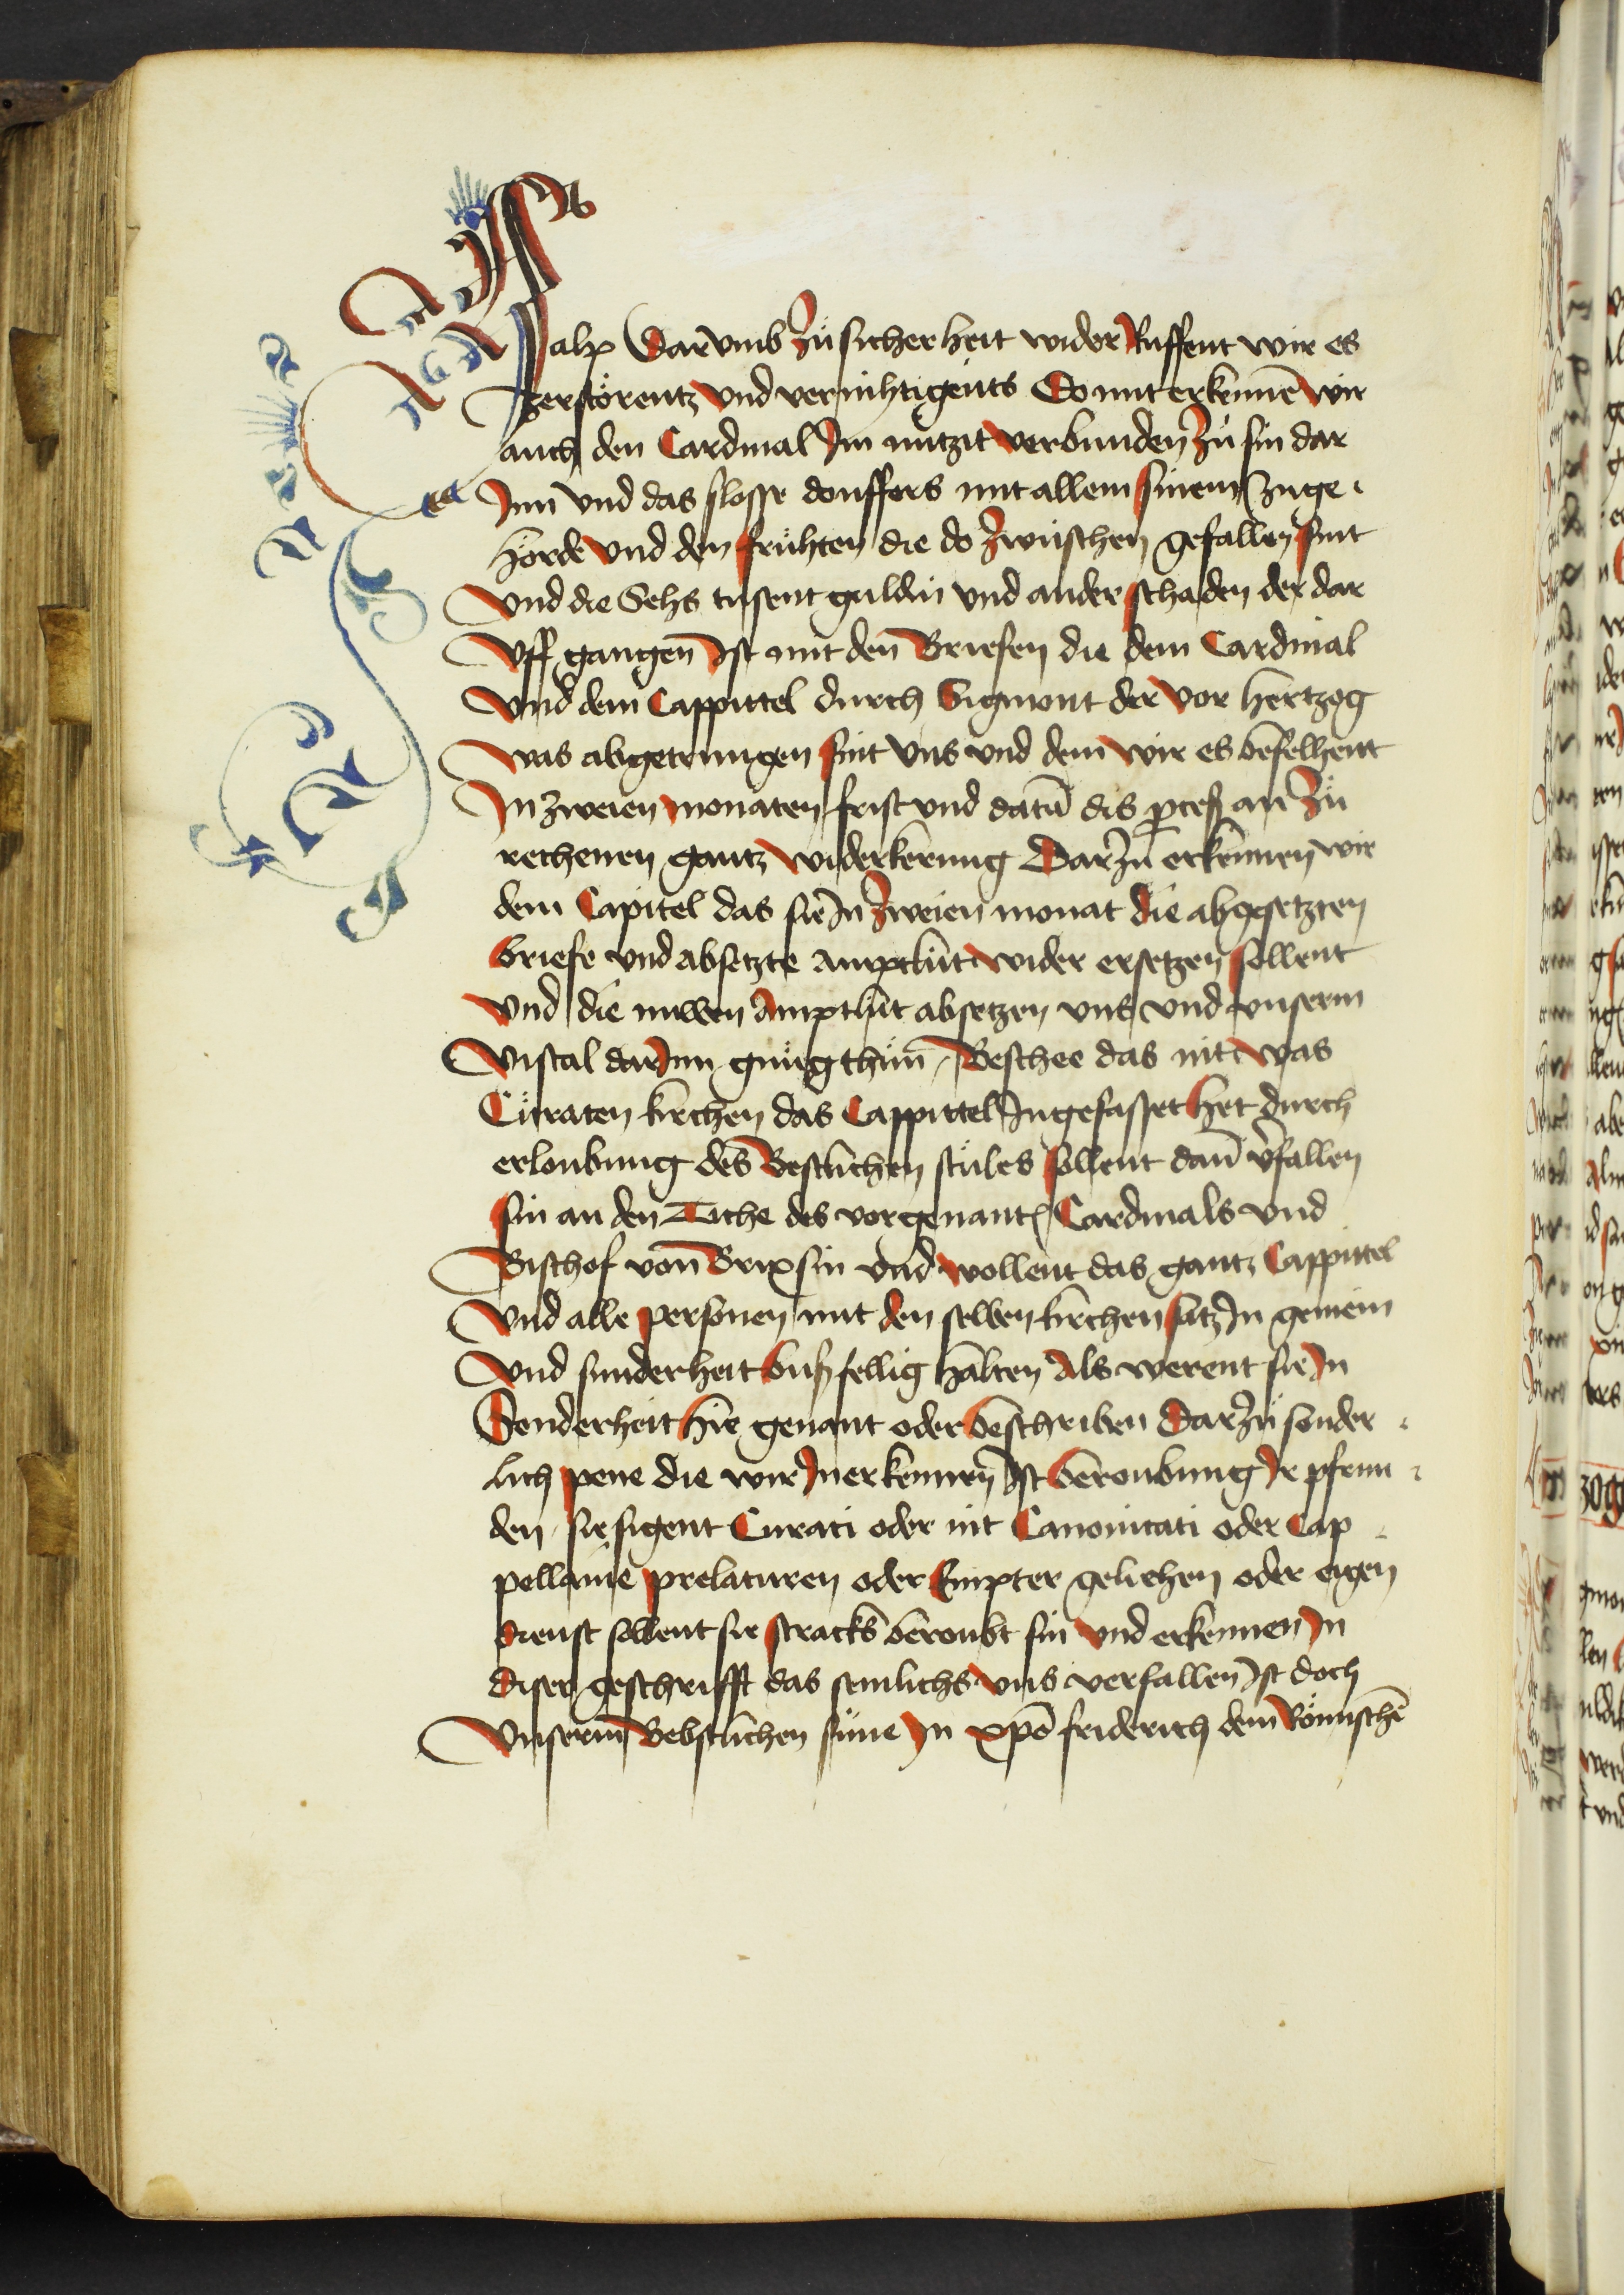 valx Darvmb Zů sicherheit wider Růffent wir es
zerstörentz vnd vernihtigents Domit erkennē wir
auch den Cardinal Im nützit verbunden Zů sin dar
Inn vnd das slosse douffers mit allem sinem zuge
hörde vnd den früchten die do Zwüschen gefallen sint
vnd die Sehs tusent guldin vnd ander schaden der dar
vff gangen Ist mit den Briefen die dem Cardinal
vnd dem Cappittel durch Sigmont der vor hertzog
was abgetrungen sint vns vnd dem wir es befelhent
In zweien monaten frist vnd datū dis pceß an Zů
rechenen gantz widerkerung Dar Zů erkennen wir
dem Capitel das sie In Zweien monat die abgesetzten
briefe vnd absetzte amptlüt wider ersetzen sollent
vnd die nuwen Amptlüt absetzen vns vnd vnserm
viscal dar Inn gnůg thůn Beschee das nit was
Curaten kirchen das Cappittel Ingefasset het durch
erloubung des Bestlichen stůles sollent dañ vfallen
sin an den Tiche des vorgenantē Cardinals vnd
Bischof von Brixsin vnd wollent das gantz Cappittel
vnd alle personen mit den selben kirchen satz In gemein
vnd sunderheit bůßfellig halten Als werent sie In
Sonderheit hie genant oder beschriben Dar Zů sonder
lich pene die wir In erkennen Ist beroubung Ir pfrun
den sie sigent Curati oder nit Canonicati oder Cap
pellanie prelaturen oder Empter gelichen oder eigen
dienst sollent sie stracks beroubt sin vnd erkennen In
diser geschrifft das semlichs vns verfallen Ist doch
vnserm Bebstlichen süne In xpō friderich dem Römischē